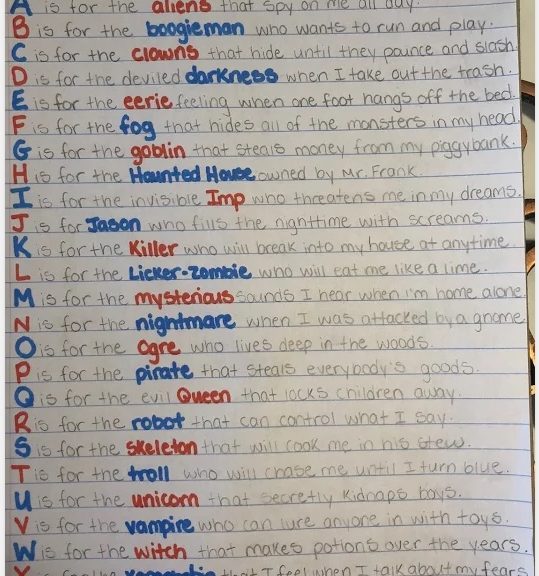 A is for the aliens that spy on me all day.
B is for the boogieman who wants to run and play.
C is for the clowns that hide until they pounce and slash
D is for the deviled darkness when I take out the trash.
E is for the eerie feeling when one foot hangs off the bed.
F is for the fog that hides all of the monsters in my head.
G is for the goblin that steals money from my piggybank.
H is for the Haunted House owned by Mr. Frank.
I is for the invisible Imp who threatens me in my dreams.
J is for Jason who fills the nighttime with screams.
K is for the Killer who will break into my house at anytime
L is for the Licker-zombie who will eat me like a lime.
M is for the mysterious sounds I hear when I'm home alone
N is for the nightmare when I was attacked by a gnome
O is for the Ogre who lives deep in the woods.
P is for the pirate that steals everybody's goods.
Q is for the evil Queen that locks children away.
R is for the robot that can control what I say.
S is for the skeleton that will cook me in his stew.
T is for the troll who will chase me until I turn blue.
U is for the unicorn that secretly kidnaps boys.
V is for the vampire who can lure anyone in with toys.
W is for the witch that makes potions over the years.
that I feel when I talk about my fears